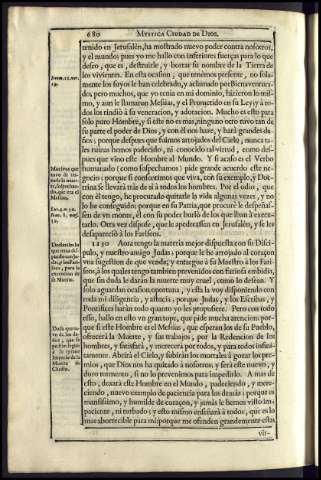 680 MYSTICA CIUDAD DE DIOS.
trado en Jerusalén, ha mostrado nuevo poder contra nosotros,
y el mundo; pues yo me hallo con inferiores fuerças para lo que
deseo, que es, destruirle, y borrar su nombre de la Tierra de
los vivientes. En esta ocasion, que tenémos presente, no sola-
mente los suyos le han celebrado, y aclamado por Bienaventura-
do, pero muchos, que yo tenia en mi dominio, hizieron lo mis-
mo, y aun le llamaron Mesías, y el Prometido en su Ley; y à to-
dos los rindiò à su veneracion, y adoracion. Mucho es esto para
solo puro Hombre, y si este no es mas, ninguno otro tuvo tan de
su parte el poder de Dios, y con él nos haze, y harà grandes da-
ños; porque despues que fuimos arrojados del Cielo, nunca ta-
les ruinas hemos padecido, ni conocido tal virtud, como des-
pues que vino este Hombre al Mundo. Y si acaso es el Verbo
humanado (como sospechamos) pide grande acuerdo este ne-
gocio; porque si consentimos que viva, con su exemplo, y Doc-
trina se llevarà tras de sí à todos los hombres. Por el odio, que
con èl tengo, he procurado quitarle la vida algunas vezes, y no
lo he conseguido; porque en su Patria, que procurè le despeñas-
sen de un monte, él con su poder burlò de los que iban à execu-
tarlo. Otra vez dispuse, que le apedreassen en Jerusalén, y se les
desapareciò à los Fariseos.
1130 Aora tengo la materia mejor dispuesta con su Disci-
pulo, y nuestro amigo Judas; porque le he arrojado al coraçon
una sugestion de que venda, y entregue à su Maestro à los Fari-
seos, à los quales tengo tambien prevenidos con furiosa embidia,
que sin duda le daràn la muerte muy cruel, como lo desean. Y
solo aguardan ocasion oportuna, y esta la voy disponiendo con
toda mi diligencia, y astucia; porque Judas, y los Escribas, y
Pontifices haràn todo quanto yo les propusiere. Pero con todo
esso, hallo en esto un gran tope, que pide mucha atencion; por-
que si este Hombre es el Mesías, que esperan los de su Pueblo,
ofrecerà la Muerte, y sus trabajos, por la Redencion de los
hombres, y satisfarà, y merecerà por todos, y para todos infini-
tamente. Abrirà el Cielo, y subiràn los mortales à gozar los pre-
mios, que Dios nos ha quitado à nosotros; y serà este nuevo, y
duro tormento, si no lo prevenimos para impedirlo. A mas de
esto, dexarà este Hombre en el Mundo, padeciendo, y mere-
ciendo, nuevo exemplo de paciencia para los demàs; porque es
mansissimo, y humilde de coraçon, y jamàs le hemos visto im-
paciente, ni turbado; y esto mismo enseñarà à todos, que es lo
mas aborrecible para mi; porque me ofenden grandemente estas
vir-